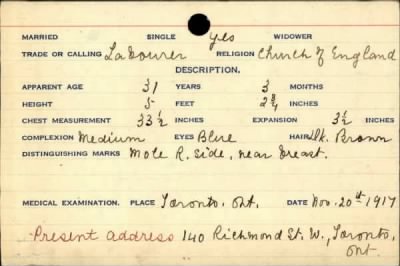 MARRIED SINGLE yes WIDOWER
TRADE OR CALLING Labourer RELIGION Church of England
DESCRIPTION.
APPARENT AGE 31 YEARS 3 MONTHS
HEIGHT 5 FEET 2 3/4 INCHES
CHEST MEASUREMENT 33 1/2 INCHES EXPANSION 3 1/2 INCHES
COMPLEXION Medium EYES Blue HAIR Dk. Brown
DISTINGUISHING MARKS Mole R. Side, near breast.
MEDICAL EXAMINATION. PLACE Toronto. Ont. DATE Nov. 20th 1917
Present Address 140 Richmond St. W., Toronto,
Ont.